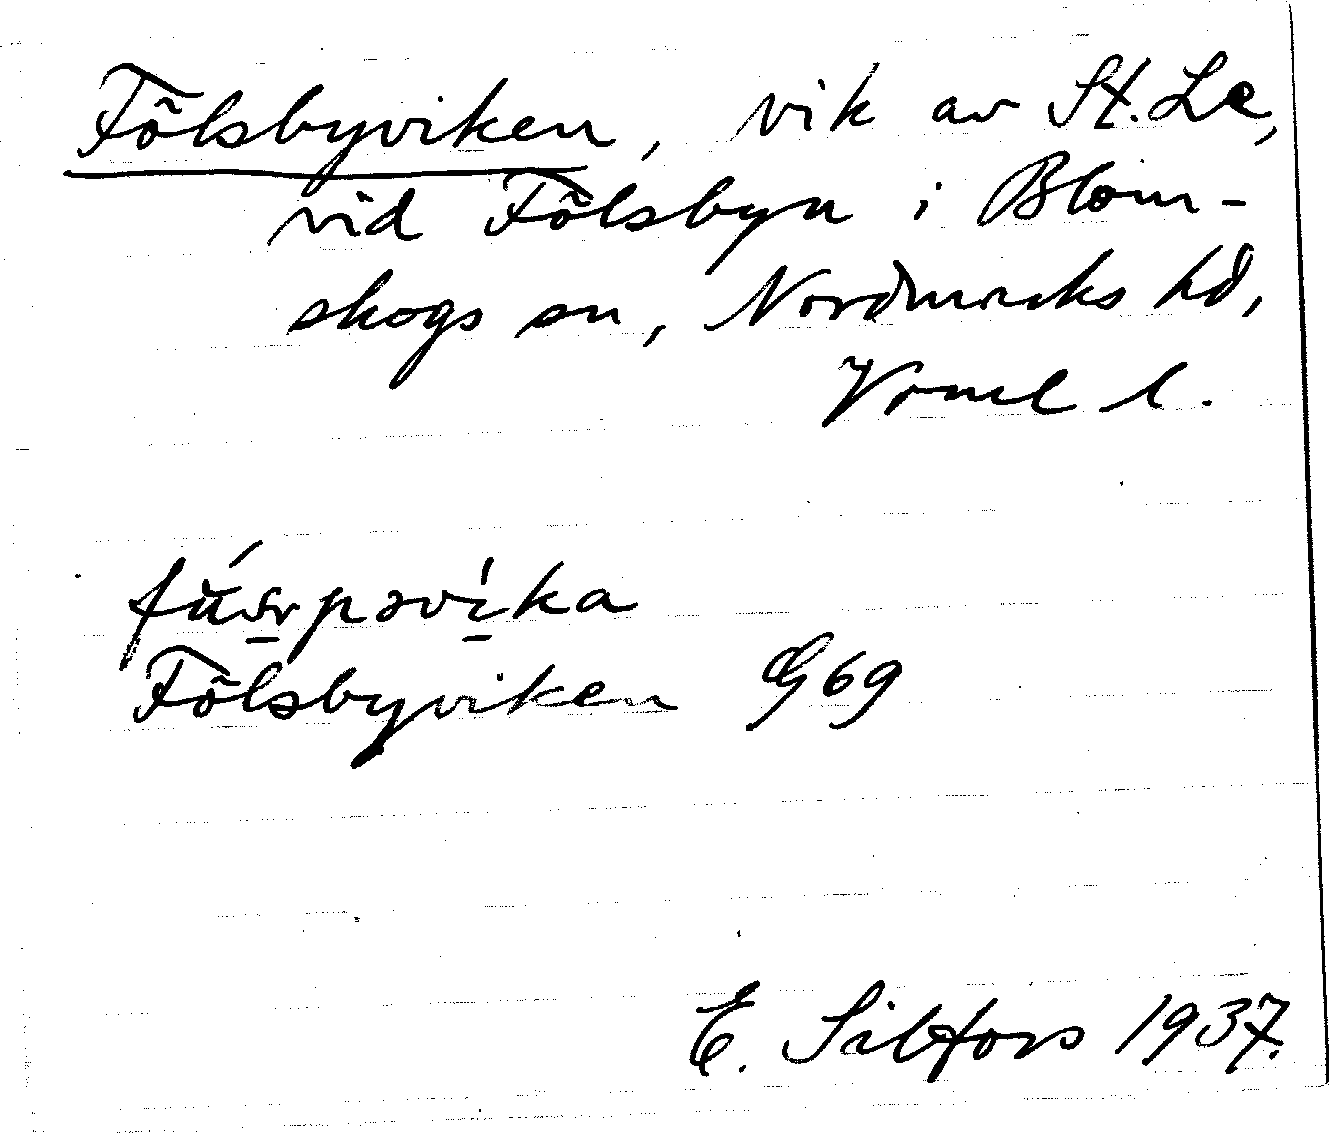 Fölsbyviken, vik av St. Le,
vid Fölsbyn i Blom-
skogs sn, Nordmarks hd,
Vrml l.
Fölsbyviken G69
E. Silfors 1937.